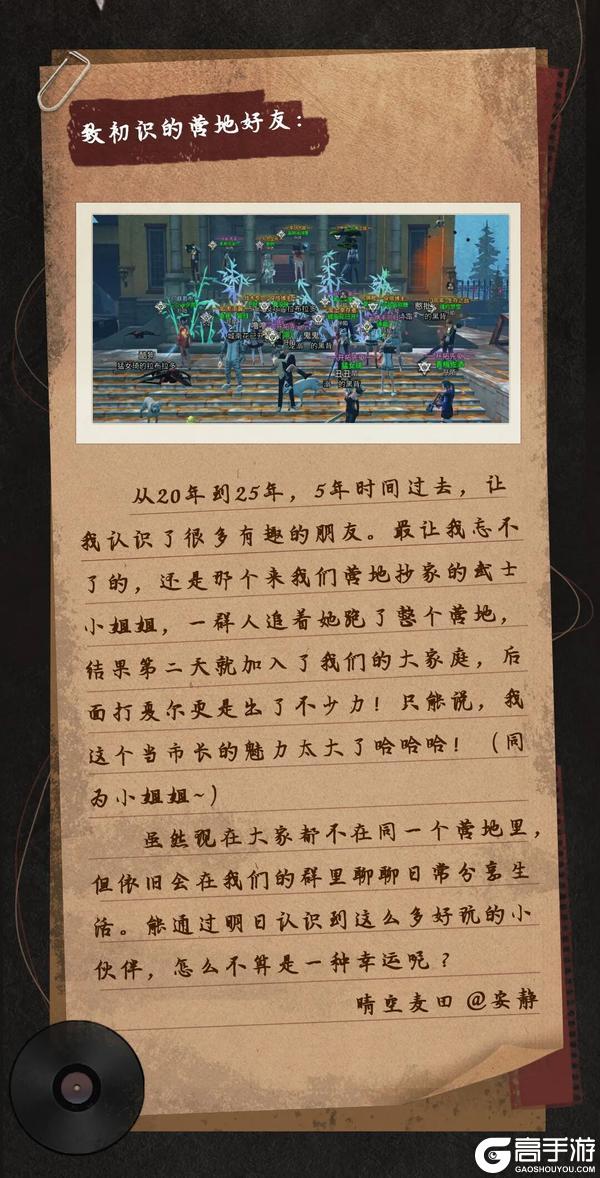 致初识的营地好友：
猛女琦的拉布拉多
从20年到25年，5年时间过去，让
我认识了很多有趣的朋友。最让我忘不
了的，还是那个来我们营地抄家的武士
小姐姐，一群人追着她跑了整个营地，
结果第二天就加入了我们的大家庭，后
面打夏尔更是出了不少力！只能说，我
这个当市长的魅力太大了哈哈哈！（同
为小姐姐~）
虽然现在大家都不在同一个营地里，
但依旧会在我们的群里聊聊日常分享生
活。能通过明日认识到这么多好玩的小
伙伴，怎么不算是一种幸运呢？
晴空麦田 @安静
高手游
GAOSHOUYOU.COM